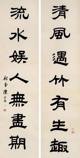 清風遇竹有生趣
流水娛人無盡期